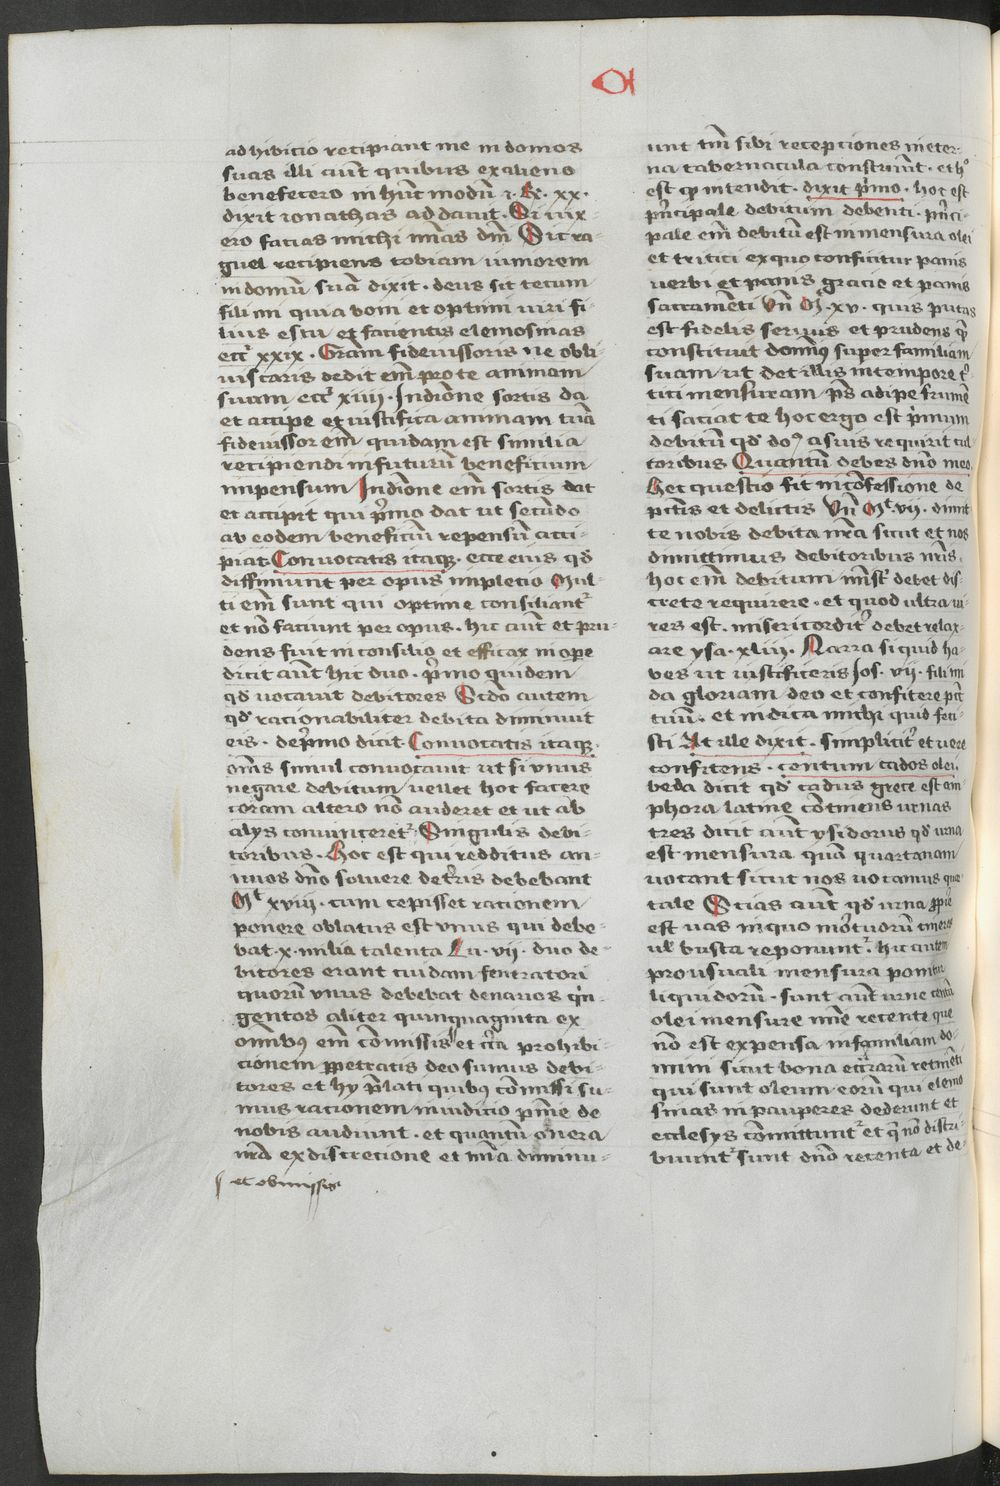 ad hibicio recipiant me in domos
suas illi cūt quibus ex alieno
benefecero in hūc modū i. R. xx.
dixit ionathas ad dauit. Si uix-
ero facias michi mīas dnī Sic ra
guel recipiens tobiam iuniorem
in domū suā dixit. deus sit tecum
fili mi quia boni et optimi uiri fi-
lius es tu et facientis elemosinas
eccī xxix. Grām fideiussoris ne obli-
uiscaris dedit em̄ pro te animam
suam eccī xiiii. In dōne sortis da
et accipe et iustifica animam tuā
fideiussor em̄ quidam est similia
recipiendi in futurū beneficium
impensum In dōne em̄ sortis dat
et accipit qui p̄mo dat ut secūdo
ab eodem beneficiū repensū acci-
piat. Conuocatis itaqꝫ. ecce eius qđ
diffiniunt per opus impletio Mul-
ti em̄ sunt qui optime consiliant᷑
et nō faciunt per opus. hic aūt et pru-
dens fuit in consilio et efficax in ope
dicit aūt hic duo. p̄mo quidem
qđ uocauit debitores Scdo autem
qđ racionabiliter debita diminuit
eis. de p̄mo dicit. Conuocatis itaqꝫ.
oīs simul conuocauit ut si vnus
negare debitum vellet hoc facere
coram altero nō auderet et ut ab
alys conuinceret᷑. Singulis debi-
toribus. Hoc est qui redditus an-
nuos dnō soluere de t̄ris debebant
Mt xviii. cum cepisset rationem
ponere oblatus est vnus qui debe-
bat. x. milia talenta Lu. vii. duo de-
bitores erant cuidam feneratori
quorū vnus debebat denarios qⁱn-
gentos aliter quinquaginta ex
omībꝰ em̄ cōmissis et cͣtra prohibi-
cionem ꝑpetratis deo sumus debi-
tores et hy p̄lati quibꝰ cōmissi su-
mus racionem in iudicio pnīe de
nobis audiunt. et quantū onera
nr̄a ex discrecione et mīa diminu-
et obmissis
unt tm̄ sibi recepciones in eter-
na tabernacula construūt. et hº
est qđ intendit. dixit p̄mo. hoc est
p̄ncipale debitum debenti. p̄nci-
pale em̄ debitū est in mensura olei
et tritici ex quo conficitur panis
uerbi et panis gracie et panis
sacramenti Vn̄ Mt. xv. quis putas
est fidelis seruus et prudens quē
constituit domīnꝰ super familiam
suam ut det illis in tempore tⁱ
tici mensuram p̄s adipe frumē
ti saciat te hoc ergo est p̄mum
debitū qđ doꝰ a suis requirit cul-
toribus Quantū debes dnō meo
Hec questio fit in cōfessione de
pctīs et delictis Vn̄ Mt. vii. dimit
te nobis debita nr̄a sicut et nos
dimittimus debitoribus nr̄is.
hoc em̄ debitum minst᷑ debet dis-
crete requirere. et quod ultra ui-
res est. misericordit᷑ debet relax-
are ysa. xliii. Narra si quid ha-
bes ut iustificeris Jos. vii. fili mi
da gloriam deo et confitere pctī
tuū. et indica michi quid feci-
sti At ille dixit. simplicit᷑ et uere
confitens. centum cados olei.
beda dicit qđ cadus grece est am
phora latine cōtinens urnas
tres dicit aūt ysidorus qđ urna
est mensura quā quartanam
uocant sicut nos uocamus que
tale Scias aūt qđ urna ꝓprie
est uas in quo mortuorū cineres
ul̄ busta reponunt᷑. hic autem
pro usuali mensura ponitur
liquidorū. sunt aūt urne centū
olei mensure mīe recente que
nō est expensa in familiam do-
mini sicut bona eccīarū retenti
qui sunt oleum eorū qui elemo
sinas in pauperes dederunt et
ecclesys cōmittunt᷑ et q̄ nō distri-
buunt᷑ sunt dnō recenta et de-